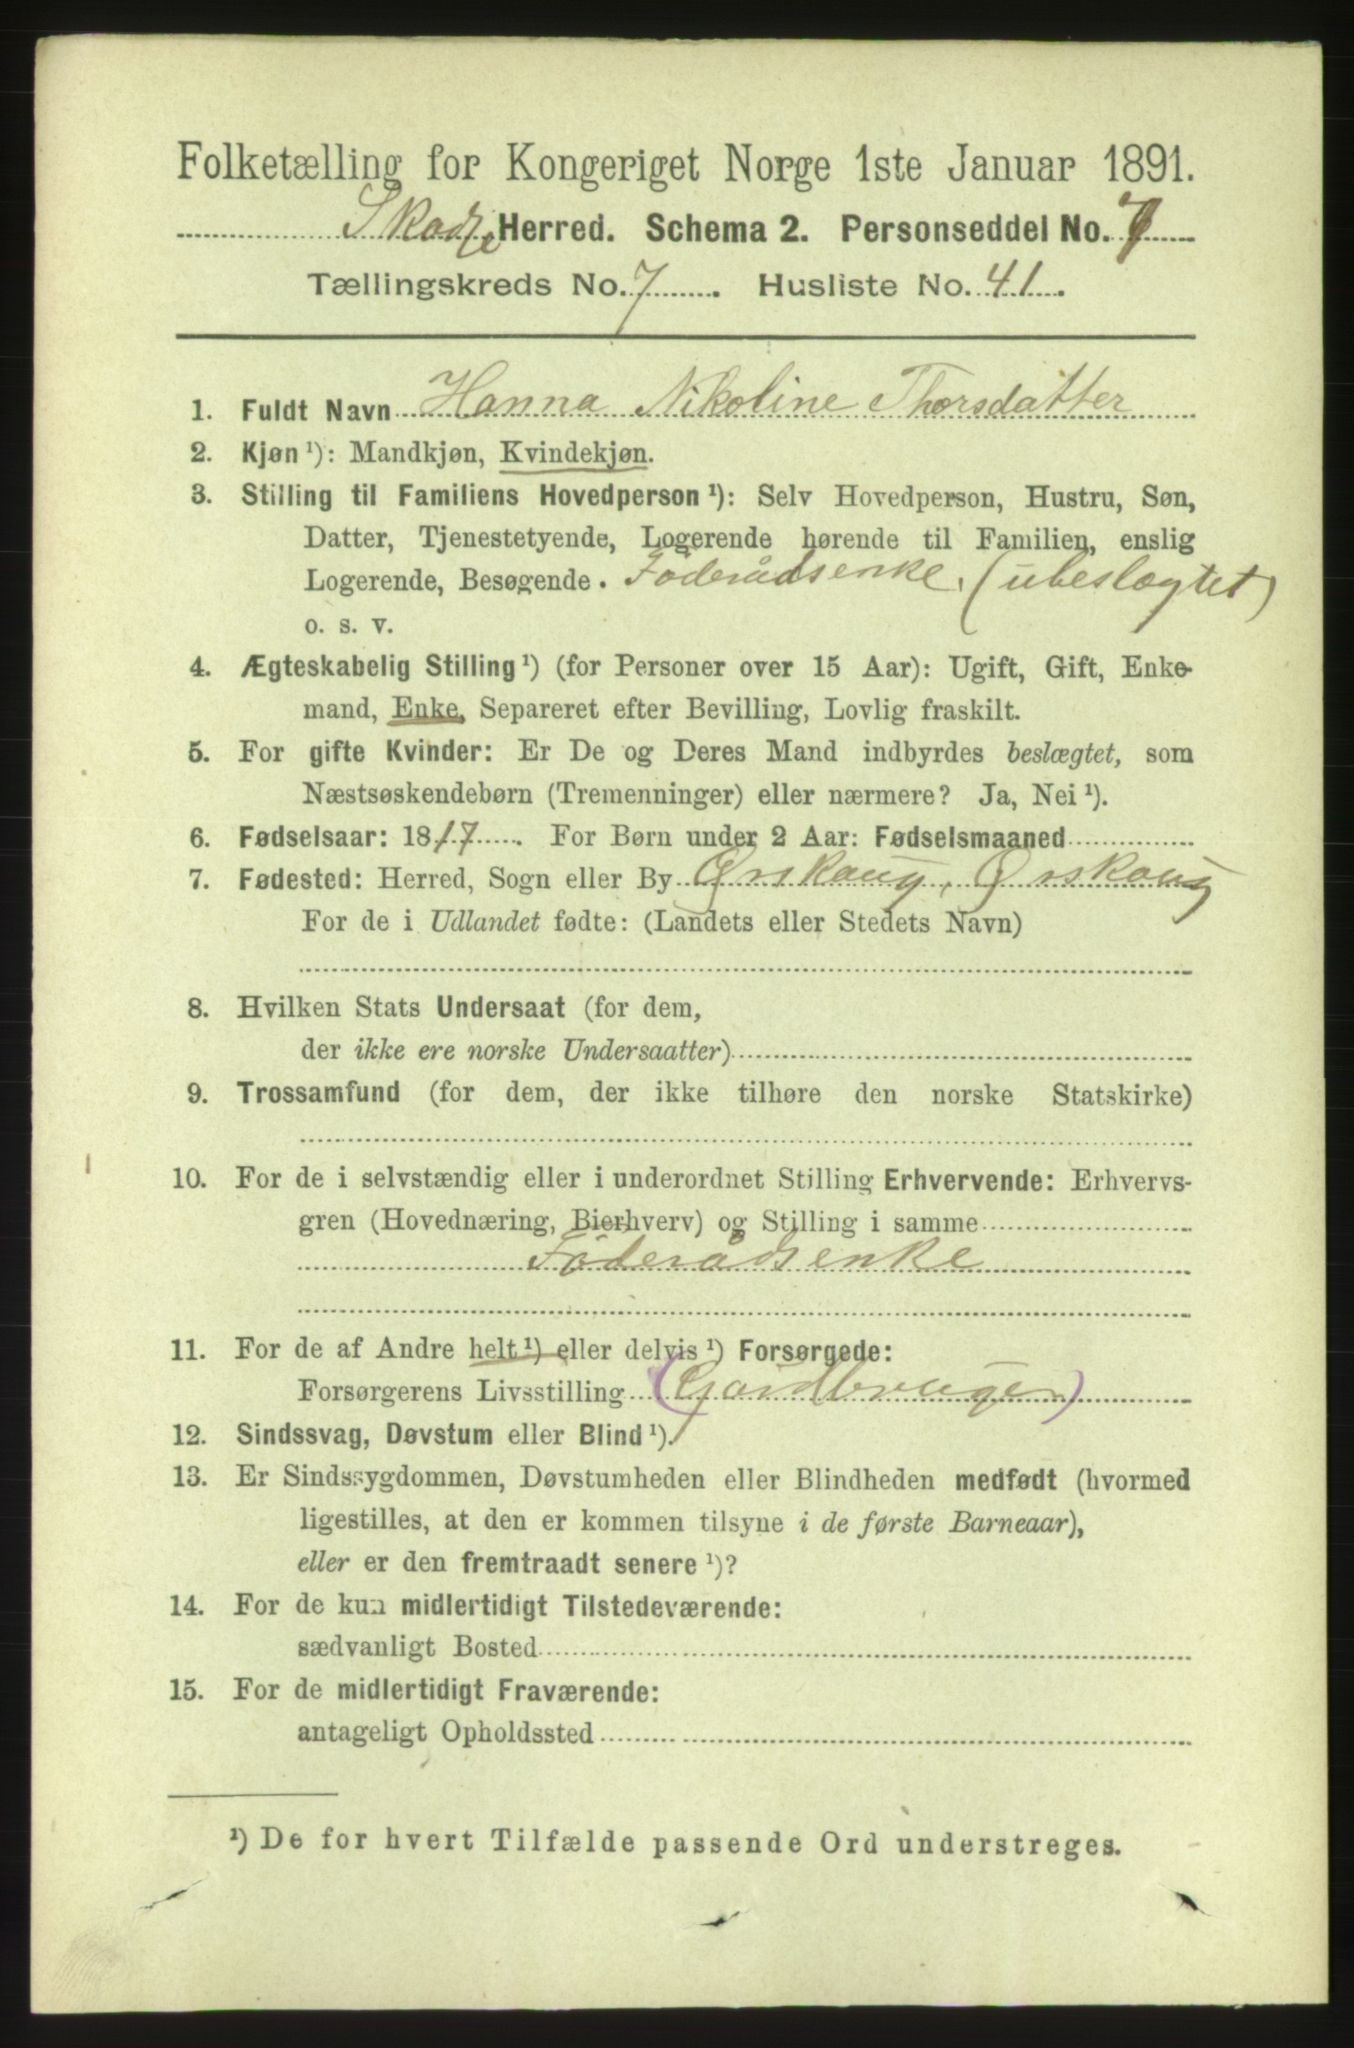 Folketælling for Kongeriget Norge 1ste Januar 1891.
Skodje Herred. Schema 2. Personseddel No. 7
Tællingskreds No. 7. Husliste No. 41.
1. Fuldt Navn Hanna Nikoline Thorsdatter
2. Kjøn ¹): Mandkjøn, Kvindekjøn.
3. Stilling til Familiens Hovedperson ¹): Selv Hovedperson, Hustru, Søn,
Datter, Tjenestetyende, Logerende hørende til Familien, enslig
Logerende, Besøgende. Føderådsenke. (ubeslægtet)
o. s. v.
4. Ægteskabelig Stilling ¹) (for Personer over 15 Aar): Ugift, Gift, Enke-
mand, Enke, Separeret efter Bevilling, Lovlig fraskilt.
5. For gifte Kvinder: Er De og Deres Mand indbyrdes beslægtet, som
Næstsøskendebørn (Tremenninger) eller nærmere? Ja, Nei ¹).
6. Fødselsaar: 1817. For Børn under 2 Aar: Fødselsmaaned
7. Fødested: Herred, Sogn eller By Ørskaug, Ørskaug
For de i Udlandet fødte: (Landets eller Stedets Navn)
8. Hvilken Stats Undersaat (for dem,
der ikke ere norske Undersaatter)
9. Trossamfund (for dem, der ikke tilhøre den norske Statskirke)
10. For de i selvstændig eller i underordnet Stilling Erhvervende: Erhvervs-
gren (Hovednæring, Bierhverv) og Stilling i samme
Føderådsenke
11. For de af Andre helt ¹) eller delvis ¹) Forsørgede:
Forsørgerens Livsstilling (Gårdbruger)
12. Sindssvag, Døvstum eller Blind ¹).
13. Er Sindssygdommen, Døvstumheden eller Blindheden medfødt (hvormed
ligestilles, at den er kommen tilsyne i de første Barneaar),
eller er den fremtraadt senere ¹)?
14. For de kun midlertidigt Tilstedeværende:
sædvanligt Bosted
15. For de midlertidigt Fraværende:
antageligt Opholdssted
¹) De for hvert Tilfælde passende Ord understreges.